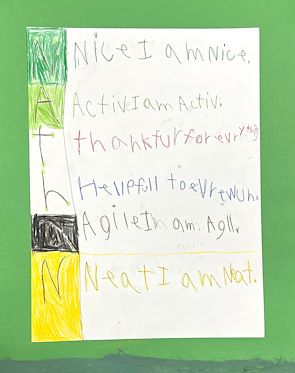 N Nice I am Nice.
A Activ I am Activ.
t thankful for evrything
h Helpfull to evrewun.
A Agile I am Agil.
N Neat I am Neat.